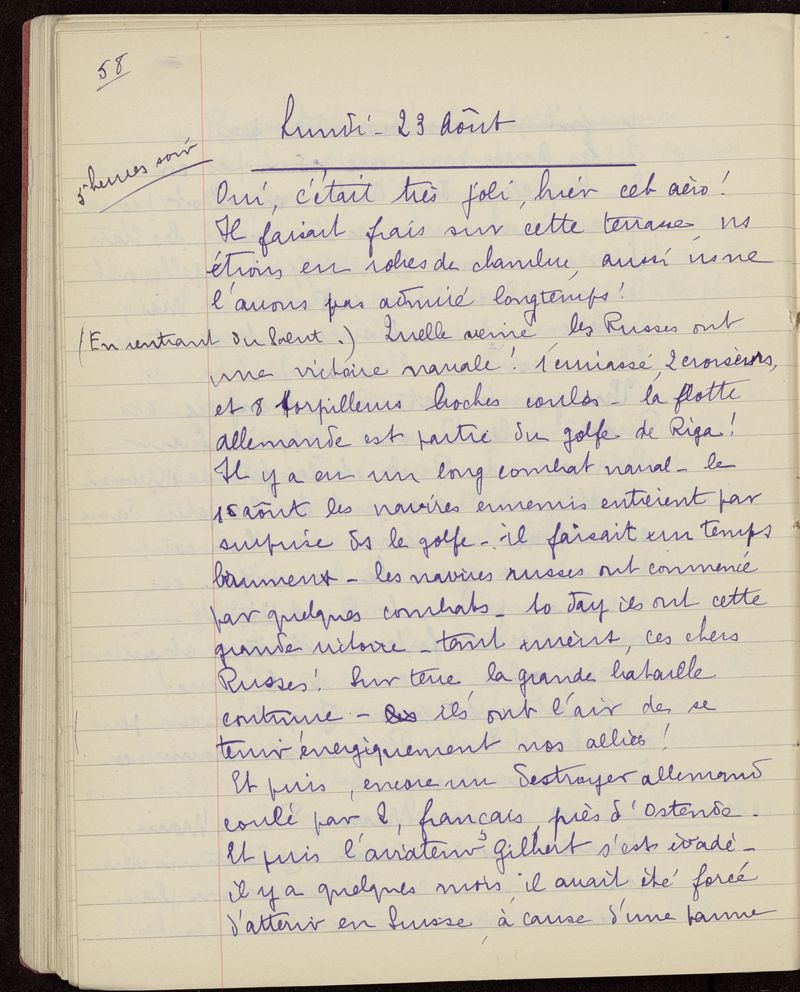 58
Lundi - 23 Août
5 heures soir
Oui, c'était très joli, hier cet aéro!
Il faisait frais sur cette terrasse, ns
étions en robes de chambre, aussi ns ne
l'avons pas admiré longtemps!
(En rentrant du Salut.) Quelle veine les Russes ont
une victoire navale! 1 cuirassé, 2 croiseurs,
et 8 torpilleurs boches coulés - la flotte
allemande est partie du golfe de Riga!
Il y a eu un long combat naval - le
15 août les navires ennemis entrèrent par
surprise ds le golfe - il faisait un temps
brumeux - les navires russes ont commencé
par quelques combats - to day ils ont cette
grande victoire - tant mieux, ces chers
Russes! Sur terre la grande bataille
continue - ils ont l'air de se
tenir énergiquement nos alliés!
Et puis, encore un destroyer allemand
coulé par 2, français, près d'Ostende.
Et puis l'aviateur Gilbert s'est évadé -
il y a quelques mois, il avait été forcé
d'atterrir en Suisse, à cause d'une panne